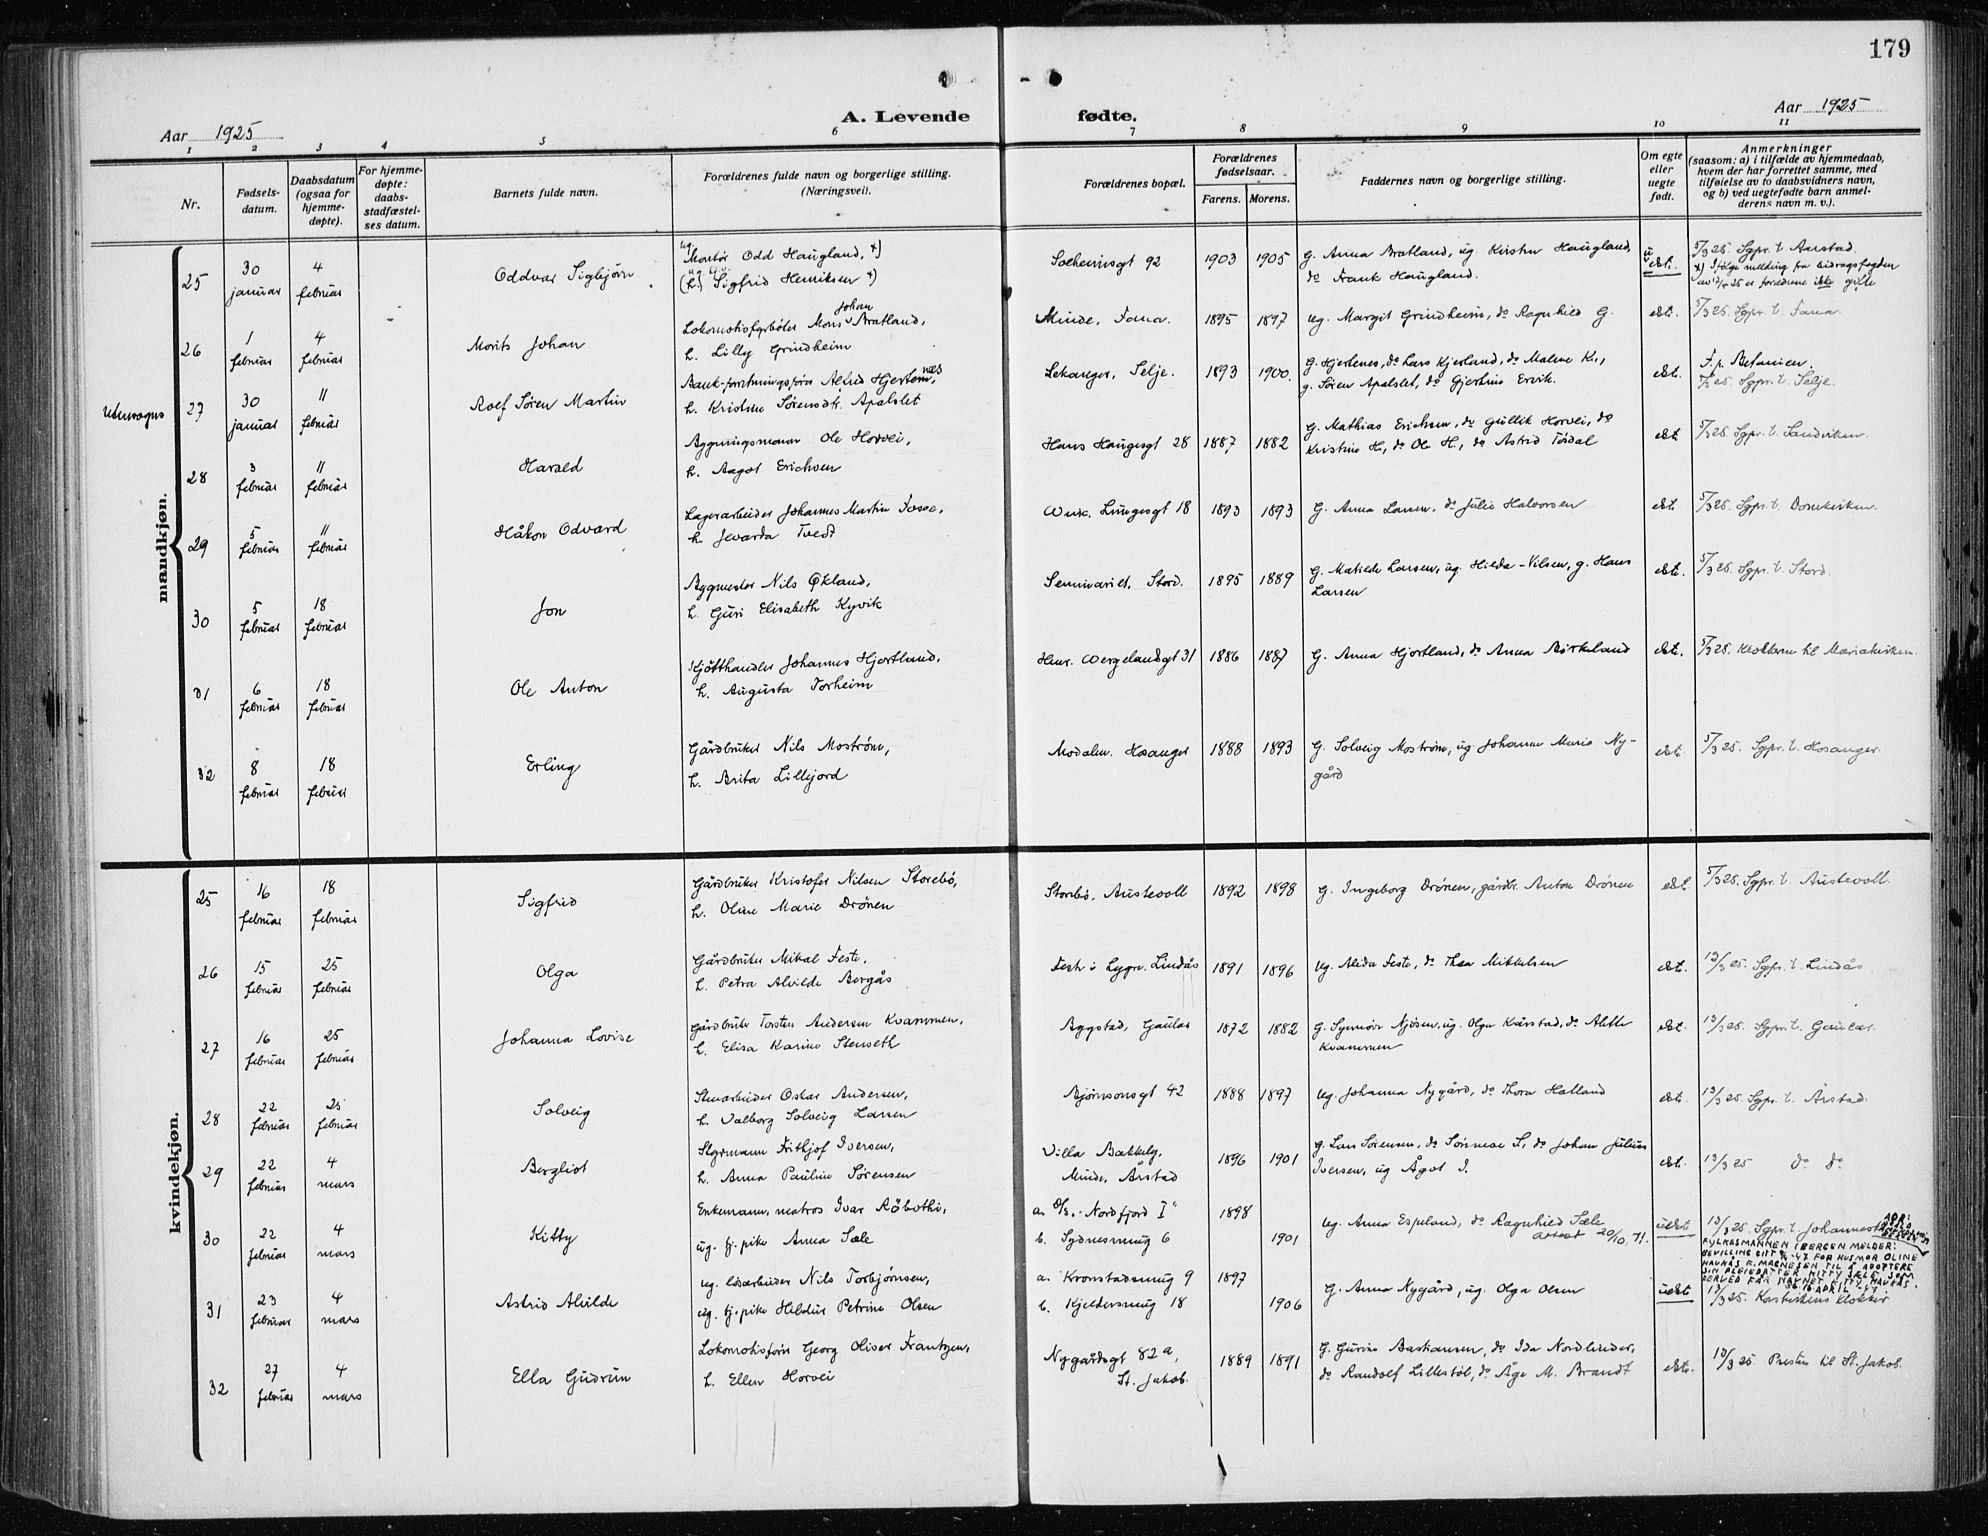 179
A. Levende fødte.
Aar 1925
Aar 1925
1 2 3 4 5 6 7 8 9 10 11
Nr.
Fødsels-
datum.
Daabsdatum
(ogsaa for
hjemme-
døpte).
For hjemme-
døpte:
daabs-
stadfæstel-
ses datum.
Barnets fulde navn.
Forældrenes fulde navn og borgerlige stilling.
(Næringsvei).
Forældrenes bopæl.
Forældrenes
fødselsaar.
Farens. Morens.
Faddernes navn og borgerlige stilling.
Om egte
eller
uegte
født.
Anmerkninger
(saasom: a) i tilfælde av hjemmedaab,
hvem der har forrettet samme, med
tilføielse av to daabsvidners navn,
og b) ved uegtefødte barn anmel-
derens navn m. v.).
mandkjøn.
25 30 januar 4 februar Oddvar Sigbjørn
ug. Montør Odd Haugland, x)
(h.) Sigfrid Henriksen x)
Solheimsgt 92 1903 1905
G. Anna Bratland, ug. Kirsten Haugland,
do Frank Haugland.
uekt.
5/3 25 Sgpr. t. Aarstad
x) Ifølge melding fra bidragsfogden
er forældrene ikke gifte
26 1 februar 4 februar Morits Johan
Lokomotivfyrbøter Mons Johan Bratland,
h. Lilly Grindheim
Minde, Fana. 1895 1897
ug. Margit Grindheim, do Ragnhild G.
ekt.
5/3 25. Sgpr. t. Fana.
utensogns
27 30 januar 11 februar Rolf Søren Martin
Bank-forretningsfører Alfred Hjertenæs,
h. Kristine Sørensdtr. Apalset
Sekanger, Selje. 1893 1900.
G. Hjertenes, do Lars Kjerland, do Malene K.,
g. Søren Apalset, do Gjertine Ervik.
ekt.
F. p. Betanien.
5/3 25. Sgpr. t. Selje.
28 3 februar 11 februar Harald
Bygningsmann Ole Horvei,
h. Aagot Erichsen
Hans Haugesgt 28 1887 1882
G. Mathias Erichsen, do Gullik Horvei, do
Kristine H., do Ole H., do Astrid Tisdal
ekt
5/3 25. Sgpr. t. Sandviken.
29 5 februar 11 februar Håkon Edvard
Lagerarbeider Johannes Martin Fosse,
h. Jevarda Tvedt
Wilk. Lungesgt 18 1893 1893
G. Anna Larsen, do Julie Halvorsen
ekt
5/3 25. Sgpr. t. Domkirken.
30 5 februar 18 februar Jon
Byggmester Nils Økland,
h. Guri Elisabeth Kyvik
Seminariet, Stord. 1895 1889
G. Matilde Larsen, ug. Hilda Nilsen, g. Hans
Larsen
ekt.
5/3 25. Sgpr. t. Stord.
31 6 februar 18 februar Ole Anton
Kjøtthandler Johannes Hjortland,
h. Augusta Torheim
Henr. Wergelandsgt 31 1886 1887
G. Anna Hjortland, do Anna Birkeland
ekt.
5/3 25. Klokkeren til Mariakirken.
32 8 februar 18 februar Erling
Gårdbruker Nils Mostrøm,
h. Brita Lillejord
Modalen. Hosanger 1888 1893
G. Solveig Mostrøm, ug Johanne Marie Ny-
gård
ekt.
5/3 25. Sgpr. t. Hosanger.
kvindekjøn.
25 16 februar 18 februar Sigfrid
Gårdbruker Kristofer Nilsen Storebø,
h. Oline Marie Drønen
Storebø, Austevoll 1892 1898
G. Ingeborg Drønen, gårdbr. Anton Drønen
ekt.
5/3 25. Sgpr. t. Austevoll.
26 15 februar 25 februar Olga
Gårdbruker Mikal Feste,
h. Petra Alvilde Bergås
Feste i Lygre. Lindås 1891 1896
ug. Alida Feste, do Thea Mikkelsen
ekt.
13/3 25. Sgpr. t. Lindås
27 16 februar 25 februar Johanna Lovise
Gårdbruker Torsten Andersen Kvammen,
h. Elisa Karine Stenseth
Bygstad, Gaular 1872 1882
G. Synnøve Njøsen, ug. Olga Kårstad, do Alette
Kvammen
ekt.
13/3 25. Sgpr. t. Gaular.
28 22 februar 25 februar Solveig
Stenarbeider Oskar Andersen,
h. Valborg Solveig Larsen
Bjørnsonsgt 42 1888 1897
ug. Johanna Nygård, do Thora Hatland
ekt.
13/3 25. Sgpr. t. Årstad.
29 22 februar 4 mars Bergliot
Styrmann Fritjof Iversen,
h. Anna Pauline Sørensen
Villa Bakkely,
Minde, Årstad
1896 1901
g. Lars Sørensen, do Sørine S., do Johan Julius
Iversen, ug Ågot I.
ekt.
13/3 25 do do
30 22 februar 4 mars Kitty
Enkemann, matros Ivar Råbothi,
ug. tj. pike Anna Sæle
a. D/S. "Nordfjord I" 1898
b. Sydnessmug 6 1901
ug. Anna Espeland, do Ragnhild Sæle
attest 20/10. 71.
uekt
13/3 25. Sgpr. t. Johannes
FYLKESMANNEN I BERGEN MELDER:
BEVILLING GITT -47 FOR HUSMOR OLINE
HAUKÅS F. MAGNESEN TIL Å ADOPTERE
SIN PLEIEDATTER KITTY SÆLE SOM
DERVED FÅR NAVNET KITTY HAUKÅS.
31 23 februar 4 mars Astrid Alvilde
ug. løsarbeider Nils Torbjørnsen,
ug. tj. pike Hildur Petrine Olsen
a. Kronstadsmug 9 1897
b. Kjeldersmug 18 1906
G. Anna Nygård, ug. Olga Olsen
uekt
13/3 25. Korskirkens klokker
32 27 februar 4 mars Ella Gudrun
Lokomotivfører Georg Oliver Frantzen,
h. Ellen Horvei
Nygårdsgt 82 a,
St. Jakob.
1889 1891
G. Gurine Bastiansen, do Ida Nordeider,
do Randolf Lillestøl, do Åge M. Brandt
ekt.
13/3 25. Presten til St. Jakob.